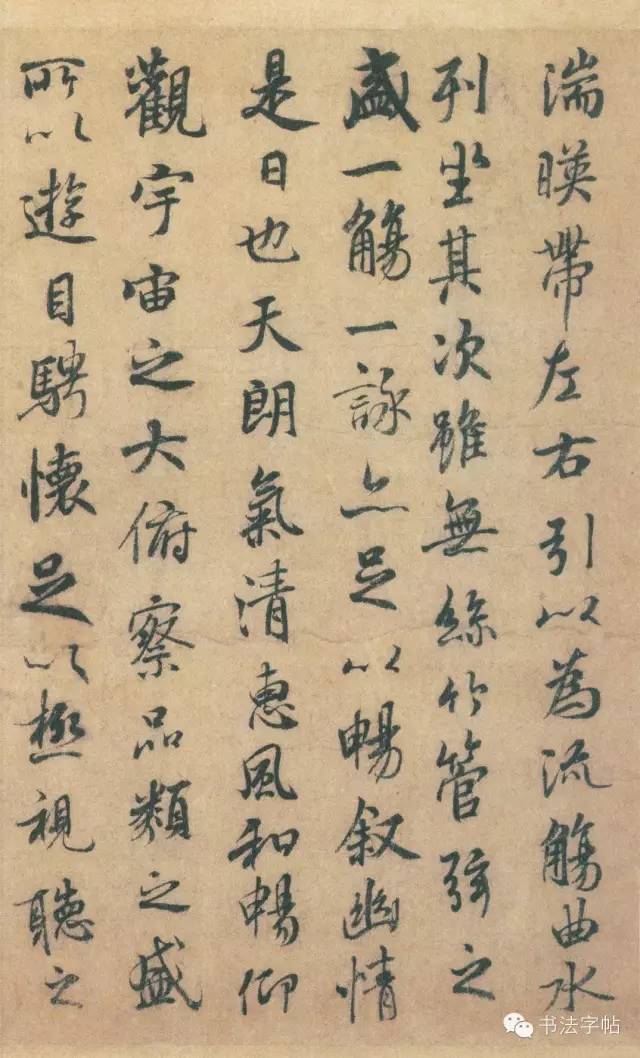 湍暎帶左右引以為流觴曲水
列坐其次雖無絲竹管弦之
盛一觴一詠亦足以暢叙幽情
是日也天朗氣清惠風和暢仰
觀宇宙之大俯察品類之盛
所以遊目騁懷足以極視聽之
书法字帖